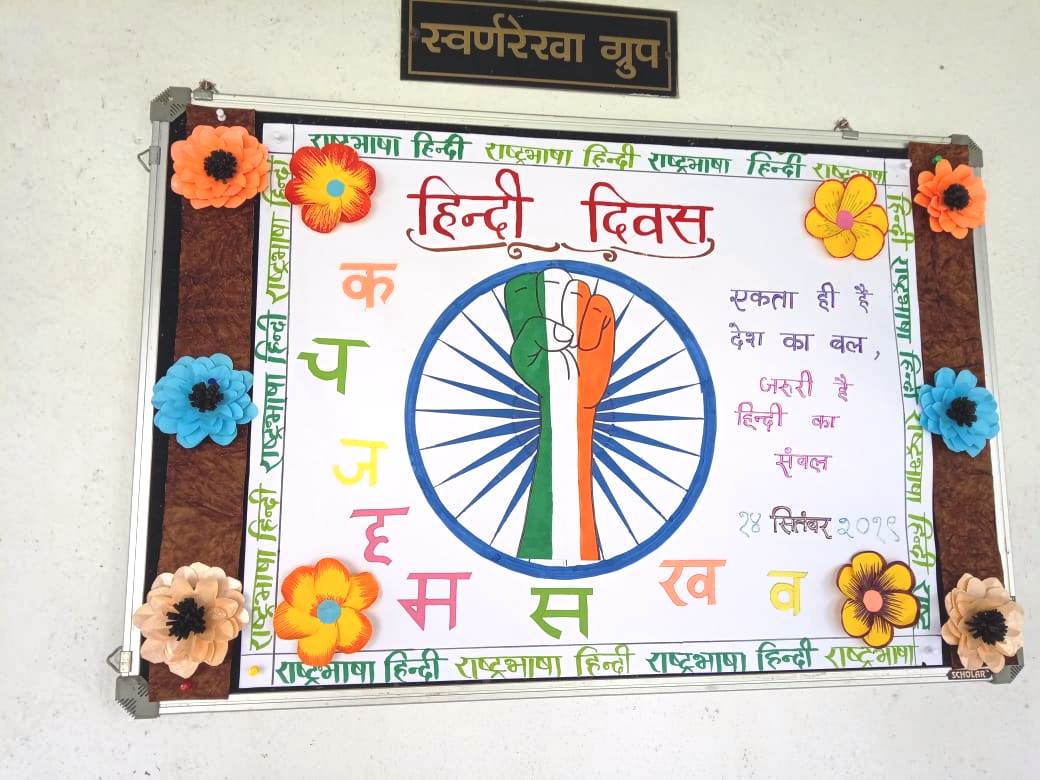 स्वर्णरेखा ग्रुप
राष्ट्रभाषा हिन्दी राष्ट्रभाषा हिन्दी राष्ट्रभाषा हिन्दी राष्ट्रभाषा
हिन्दी दिवस
क
च
ज
ह
म
स
ख
व
एकता ही है
देश का बल,
जरुरी है
हिन्दी का
संबल
१४ सितंबर २०१९
राष्ट्रभाषा हिन्दी राष्ट्रभाषा हिन्दी राष्ट्रभाषा हिन्दी
हिन्दी राष्ट्रभाषा हिन्दी राष्ट्रभाषा हिन्दी राष्ट्र
राष्ट्रभाषा हिन्दी राष्ट्रभाषा हिन्दी राष्ट्रभाषा हिन्दी राष्ट्रभाषा
SCHOLAR